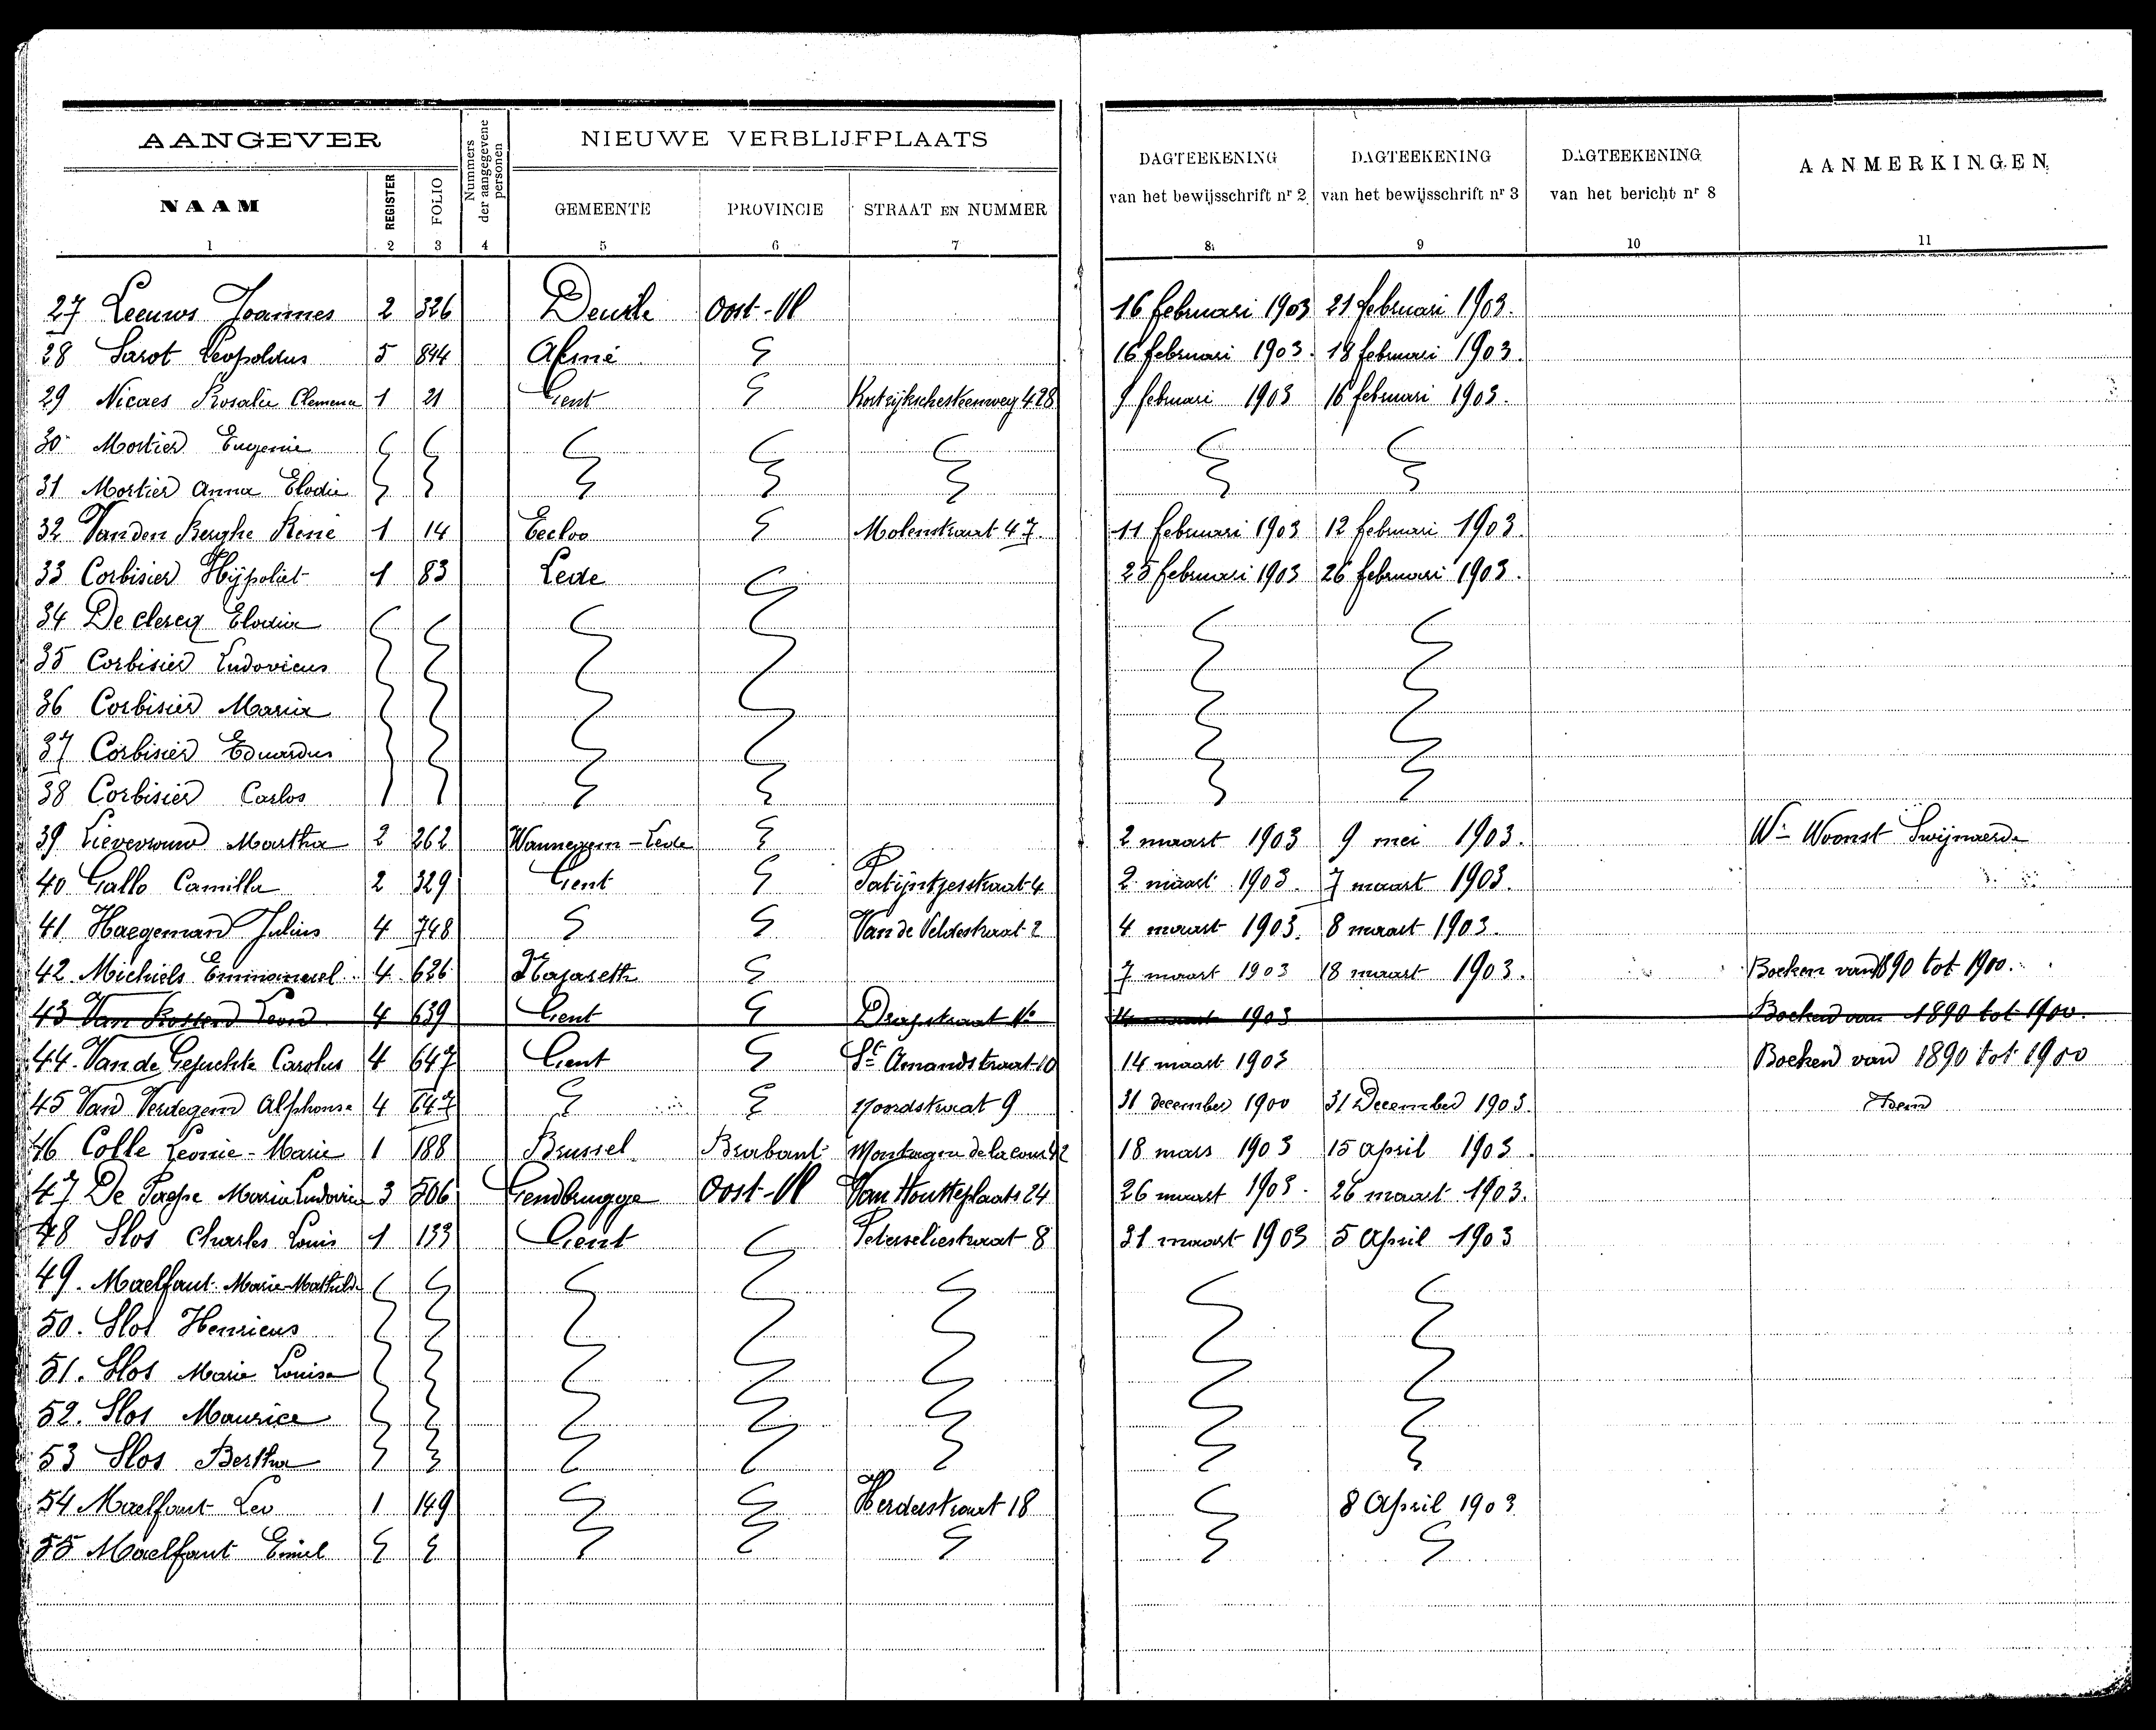 AANGEVER
Nummers der aangegevene personen
NIEUWE VERBLIJFPLAATS
DAGTEEKENING van het bewijsschrift nr 2
DAGTEEKENING van het bewijsschrift nr 3
DAGTEEKENING van het bericht nr 8
AANMERKINGEN
NAAM REGISTER FOLIO GEMEENTE PROVINCIE STRAAT EN NUMMER
1 2 3 4 5 6 7 8 9 10 11
27 Leeuws Joannes 2 326 Deurle Oost-Vl 16 februari 1903 21 februari 1903.
28 Sarot Leopoldus 5 844 16 februari 1903. 18 februari 1903.
29 Nicaes Rosalie Clemena 1 21 Gent Kortrijkschesteenweg 428 9 februari 1903 16 februari 1903.
30 Mortier Eugenie
31 Mortier Anna Elodie
32 Vanden Berghe René 1 14 Eecloo Molenstraat 47. 11 februari 1903 12 februari 1903.
33 Corbisier Hijpoliet 1 83 Lede 25 februari 1903 26 februari 1903.
34 De clercq Elodia
35 Corbisier Ludovicus
36 Corbisier Maria
37 Corbisier Eduardus
38 Corbisier Carlos
39 Lievevrouw Martha 2 262 Wannegem-Lede 2 maart 1903 9 mei 1903. Wn Woonst Swijnaerde
40 Gallo Camilla 2 329 Gent Patijntjesstraat 4 2 maart 1903. 7 maart 1903.
41 Haegeman Julius 4 748 Van de Veldestraat 2 4 maart 1903. 8 maart 1903.
42 Michiels Emmanuel 4 626 Nazareth 7 maart 1903 18 maart 1903. Boeken van 1890 tot 1900.
43 Van Leon 4 639 Gent maart 1903 Boeken van 1890 tot 1900.
44. Van de Gejuchte Carolus 4 647 Gent St Amandstraat 10 14 maart 1903 Boeken van 1890 tot 1900
45 Van Verdegem Alphonse 4 647 Noordstraat 9 31 december 1900 31 December 1903. Idem
46 Colle Leonie-Marie 1 188 Brussel Brabant Montagne de la cour 42 18 mars 1903 15 april 1903.
47 De Maria Ludovica 3 506 Gendbrugge Oost-Vl Van Houtteplaats 24 26 maart 1903. 26 maart 1903.
48 Slos Charles Louis 1 133 Gent Peterseliestraat 8 31 maart 1903 5 April 1903
49. Maelfaut Marie-Mathilde
50. Slos Henricus
51. Slos Marie Louise
52. Slos Maurice
53 Slos Bertha
54 Maelfaut Leo 1 149 Herderstraat 18 8 April 1903
55 Maelfaut Emiel